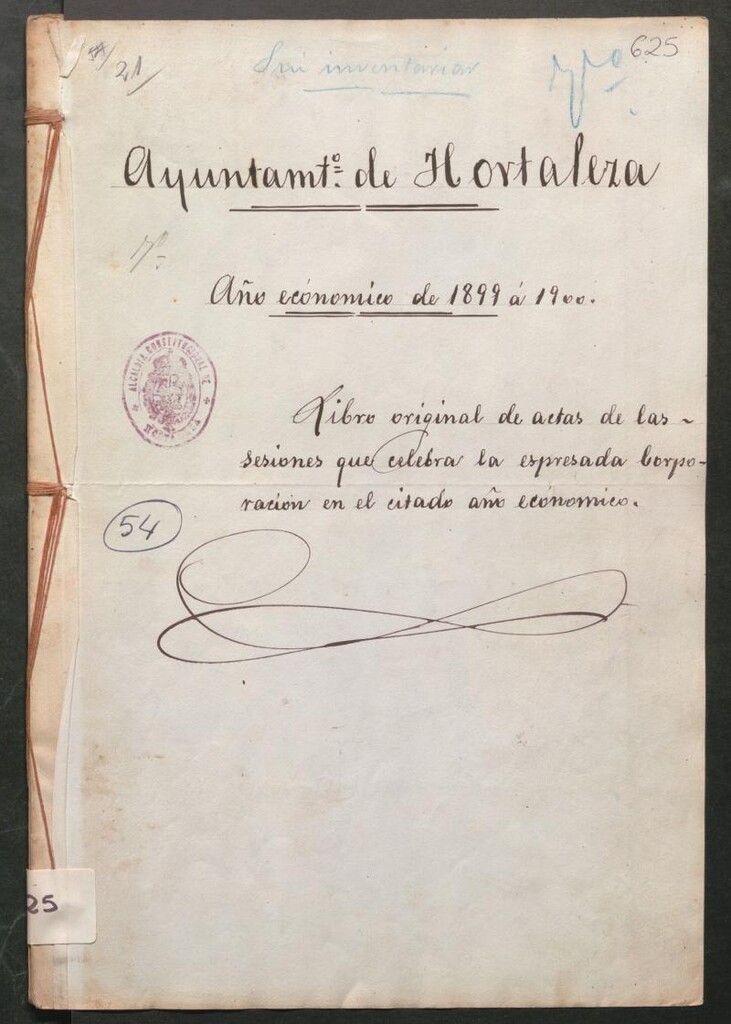 21
Sin inventariar
625
Ayuntamtº de Hortaleza
Año ecónomico de 1899 á 1900.
ALCALDIA CONSTITUCIONAL DE
HORTALEZA
Libro original de actas de las
sesiones que celebra la espresada Corpo-
ración en el citado año ecónomico.
54
25